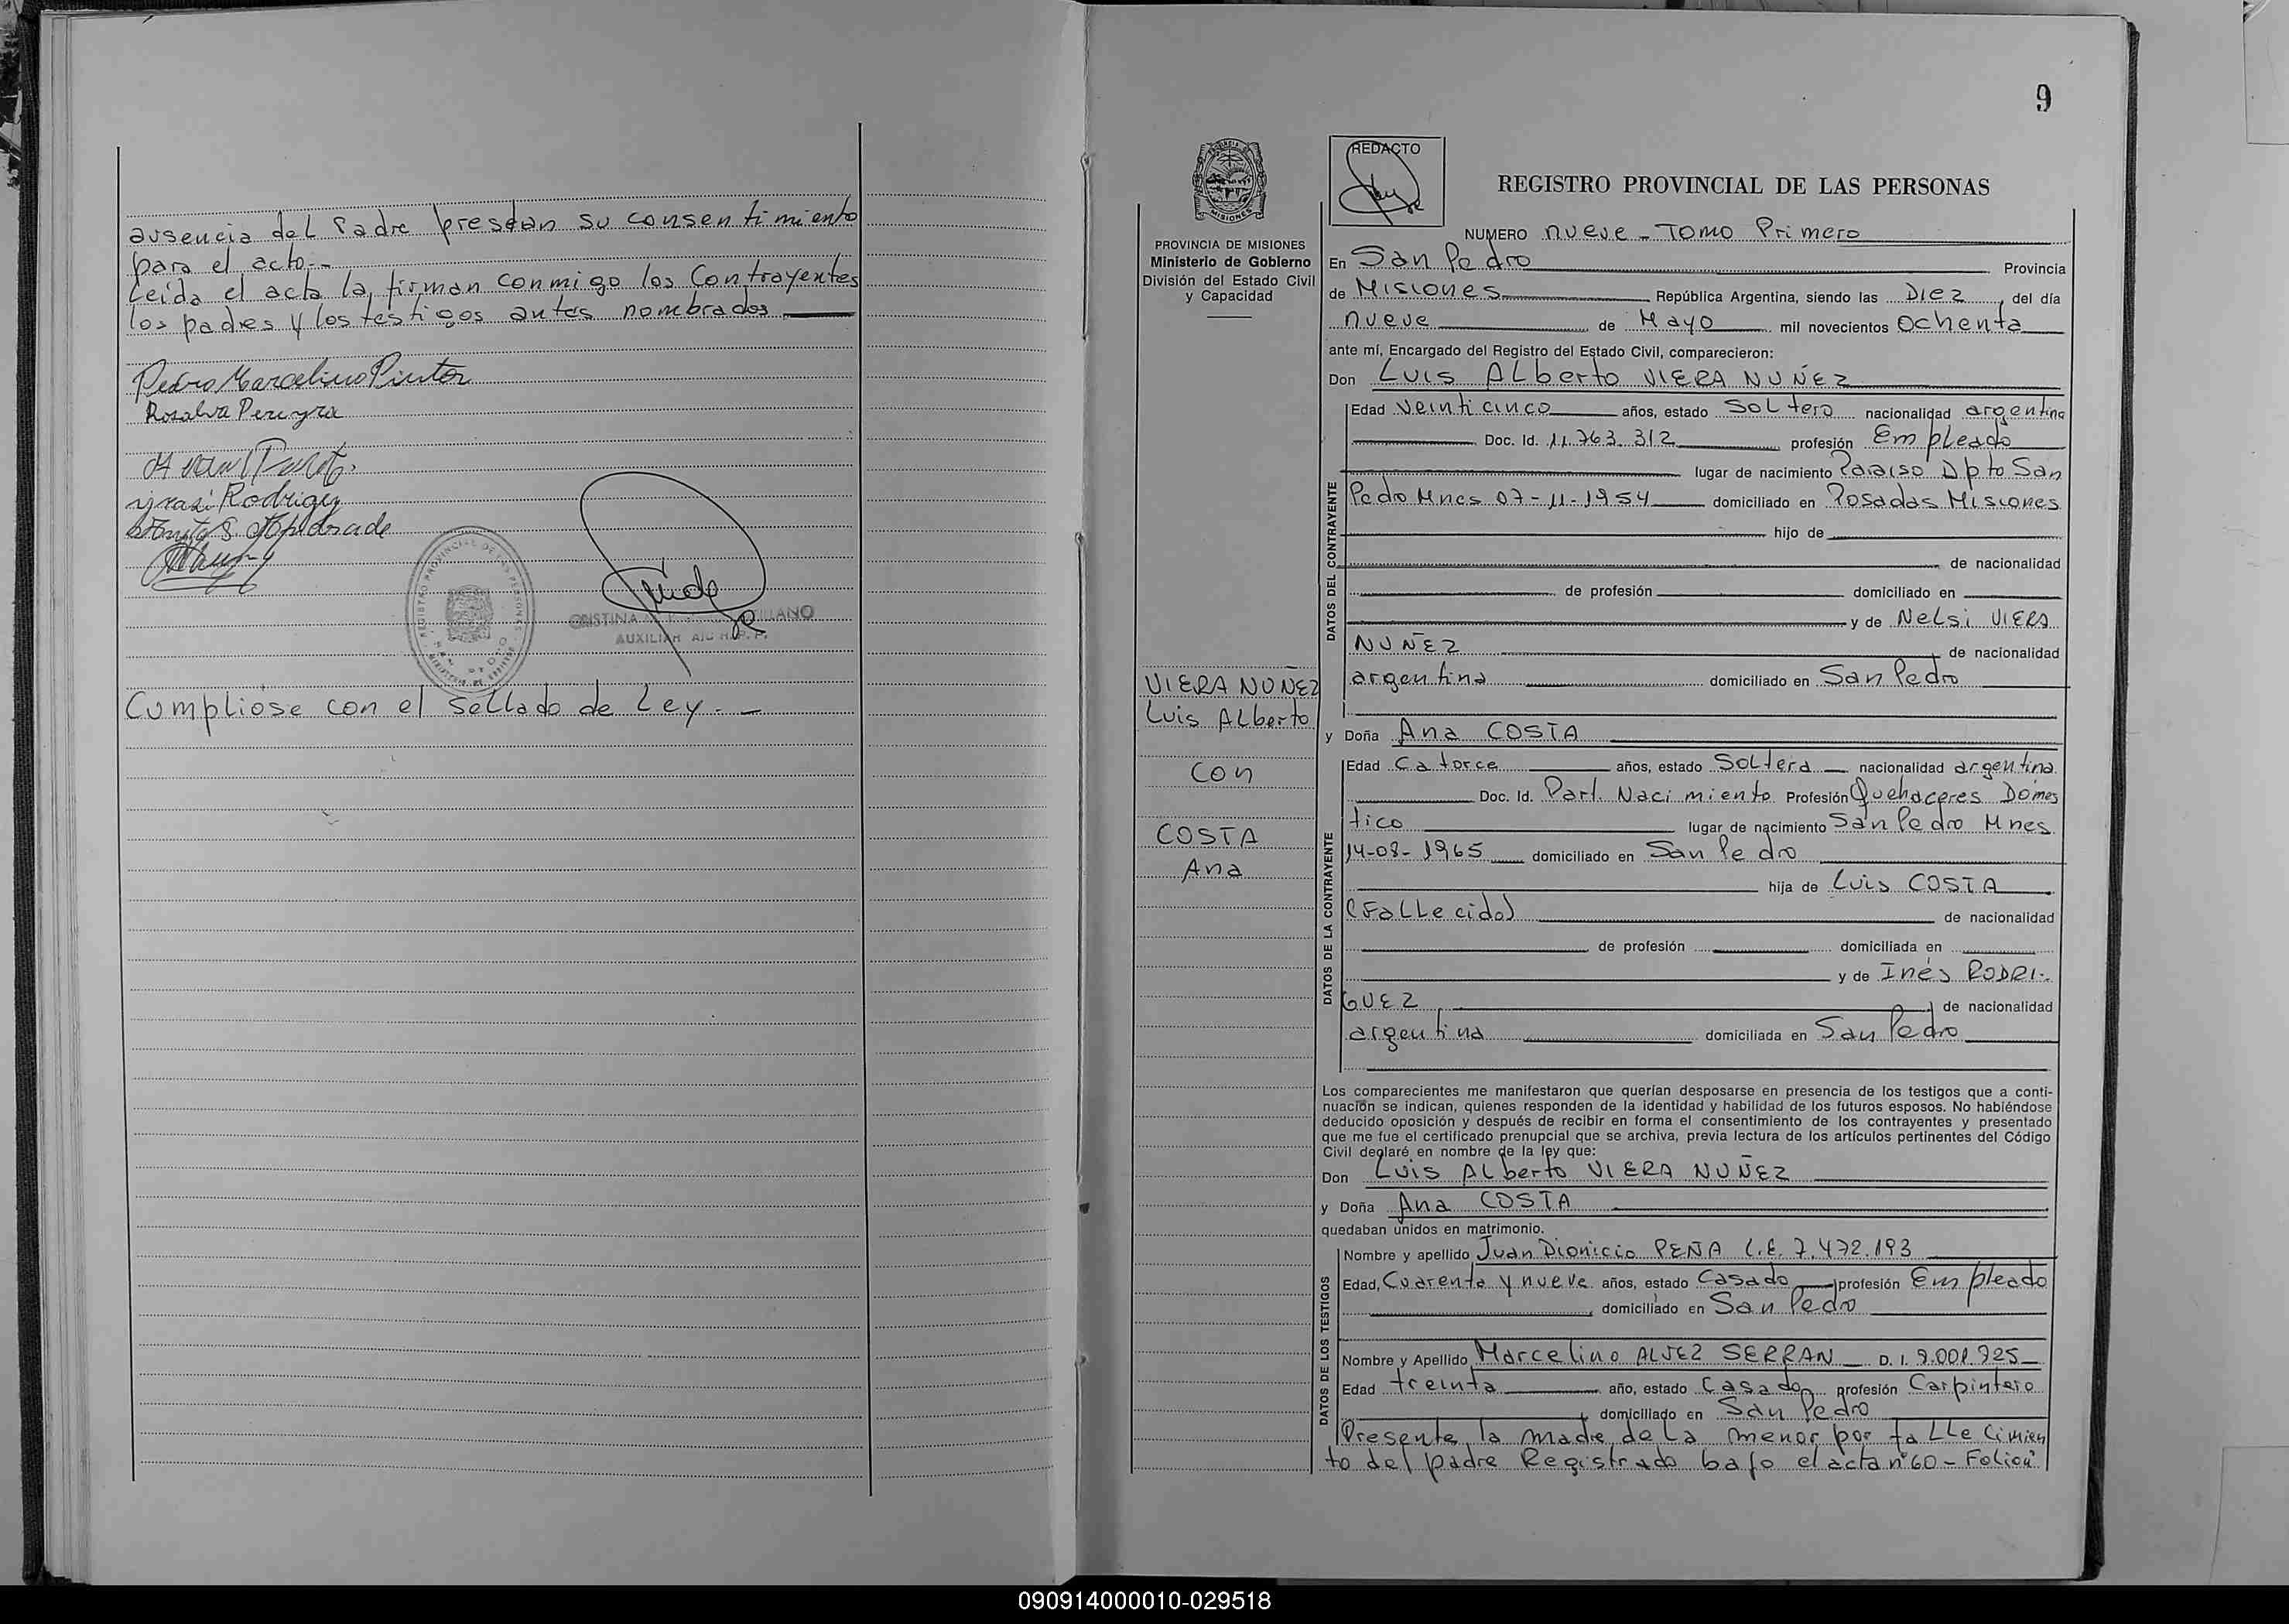 ausencia del Padre prestan su consentimiento
para el acto.-
Leida el acta la firman conmigo los Contrayentes
los padres y los testigos antes nombrados
Pedro Marcelino Pintos
Rosalva Pereyra
Rodriguez
Andrade
CRISTINA
AUXILIAR
Cumpliose con el sellado de Ley.-
9
REDACTO
REGISTRO PROVINCIAL DE LAS PERSONAS
MISIONES
PROVINCIA DE MISIONES
Ministerio de Gobierno
División del Estado Civil
y Capacidad
NUMERO nueve - TOMO Primero
En San Pedro Provincia
de Misiones República Argentina, siendo las Diez, del día
nueve de Mayo mil novecientos Ochenta
ante mí, Encargado del Registro del Estado Civil, comparecieron:
Don Luis ALberto VIERA NUÑEZ
DATOS DEL CONTRAYENTE
Edad veinticinco años, estado SoLtero nacionalidad argentina
Doc. Id. 11.763.312 profesión Empleado
lugar de nacimiento Paraiso Dpto San
Pedro Mnes 07-11-1954 domiciliado en Posadas Misiones
hijo de
de nacionalidad
de profesión domiciliado en
y de NeLsi VIERA
NUÑEZ de nacionalidad
argentina domiciliado en San Pedro
VIERA NUÑEZ
Luis ALberto
con
COSTA
Ana
y Doña Ana COSTA
DATOS DE LA CONTRAYENTE
Edad Catorce años, estado SoLtera nacionalidad argentina
Doc. Id. Part. Nacimiento Profesión Quehaceres Domes
tico lugar de nacimiento San Pedro Mnes
14-08-1965 domiciliado en San Pedro
hija de Luis COSTA
(FaLLecido) de nacionalidad
de profesión domiciliada en
y de Inés RODRI-
GUEZ de nacionalidad
argentina domiciliada en San Pedro
Los comparecientes me manifestaron que querían desposarse en presencia de los testigos que a conti-
nuación se indican, quienes responden de la identidad y habilidad de los futuros esposos. No habiéndose
deducido oposición y después de recibir en forma el consentimiento de los contrayentes y presentado
que me fue el certificado prenupcial que se archiva, previa lectura de los artículos pertinentes del Código
Civil declaré en nombre de la ley que:
Don Luis ALberto VIERA NUÑEZ
y Doña Ana COSTA
quedaban unidos en matrimonio.
DATOS DE LOS TESTIGOS
Nombre y apellido Juan Dionicio PEÑA L.E. 7.472.193
Edad, Cuarenta y nueve años, estado Casado profesión Empleado
domiciliado en San Pedro
Nombre y Apellido Marcelino ALVEZ SERRAN D.I. 9.001.725
Edad treinta año, estado Casado profesión Carpintero
domiciliado en San Pedro
Presente la madre de La menor por faLLecimien
to del padre Registrado bajo el acta nº 60 - Folio
090914000010-029518